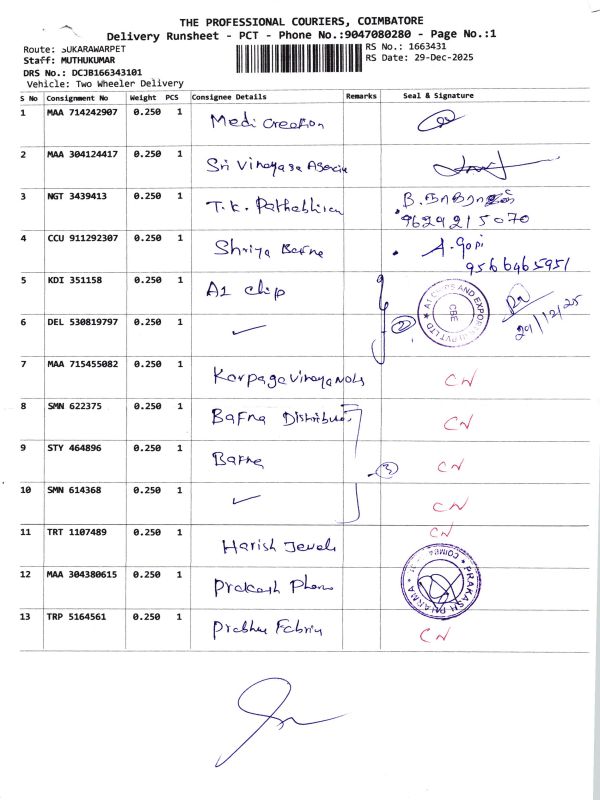 THE PROFESSIONAL COURIERS, COIMBATORE
Delivery Runsheet - PCT - Phone No.:9047080280 - Page No.:1
Route: SUKARAWARPET
RS No.: 1663431
Staff: MUTHUKUMAR
RS Date: 29-Dec-2025
DRS No.: DCJB166343101
Vehicle: Two Wheeler Delivery
S No Consignment No Weight PCS Consignee Details Remarks Seal & Signature
1 MAA 714242907 0.250 1 Medi Creation
2 MAA 304124417 0.250 1 Sri Vinayaga Agencie
3 NGT 3439413 0.250 1 T.K. Pathabhiran B. நாகராஜன்
9629215070
4 CCU 911292307 0.250 1 Shriya Bafna A. Gopi
9566465951
5 KDI 351158 0.250 1 A1 chip A1 CHIPS AND EXPORTS (I) PVT LTD CBE
29/12/25
6 DEL 530819797 0.250 1 2
7 MAA 715455082 0.250 1 Karpagavinayaga CN
8 SMN 622375 0.250 1 Bafna Distributors CN
9 STY 464896 0.250 1 Bafna 3 CN
10 SMN 614368 0.250 1 CN
11 TRT 1107489 0.250 1 Harish Jewels CN
12 MAA 304380615 0.250 1 Prakash Pharma PRAKASH PHARMA
13 TRP 5164561 0.250 1 Prabhu Fabric CN